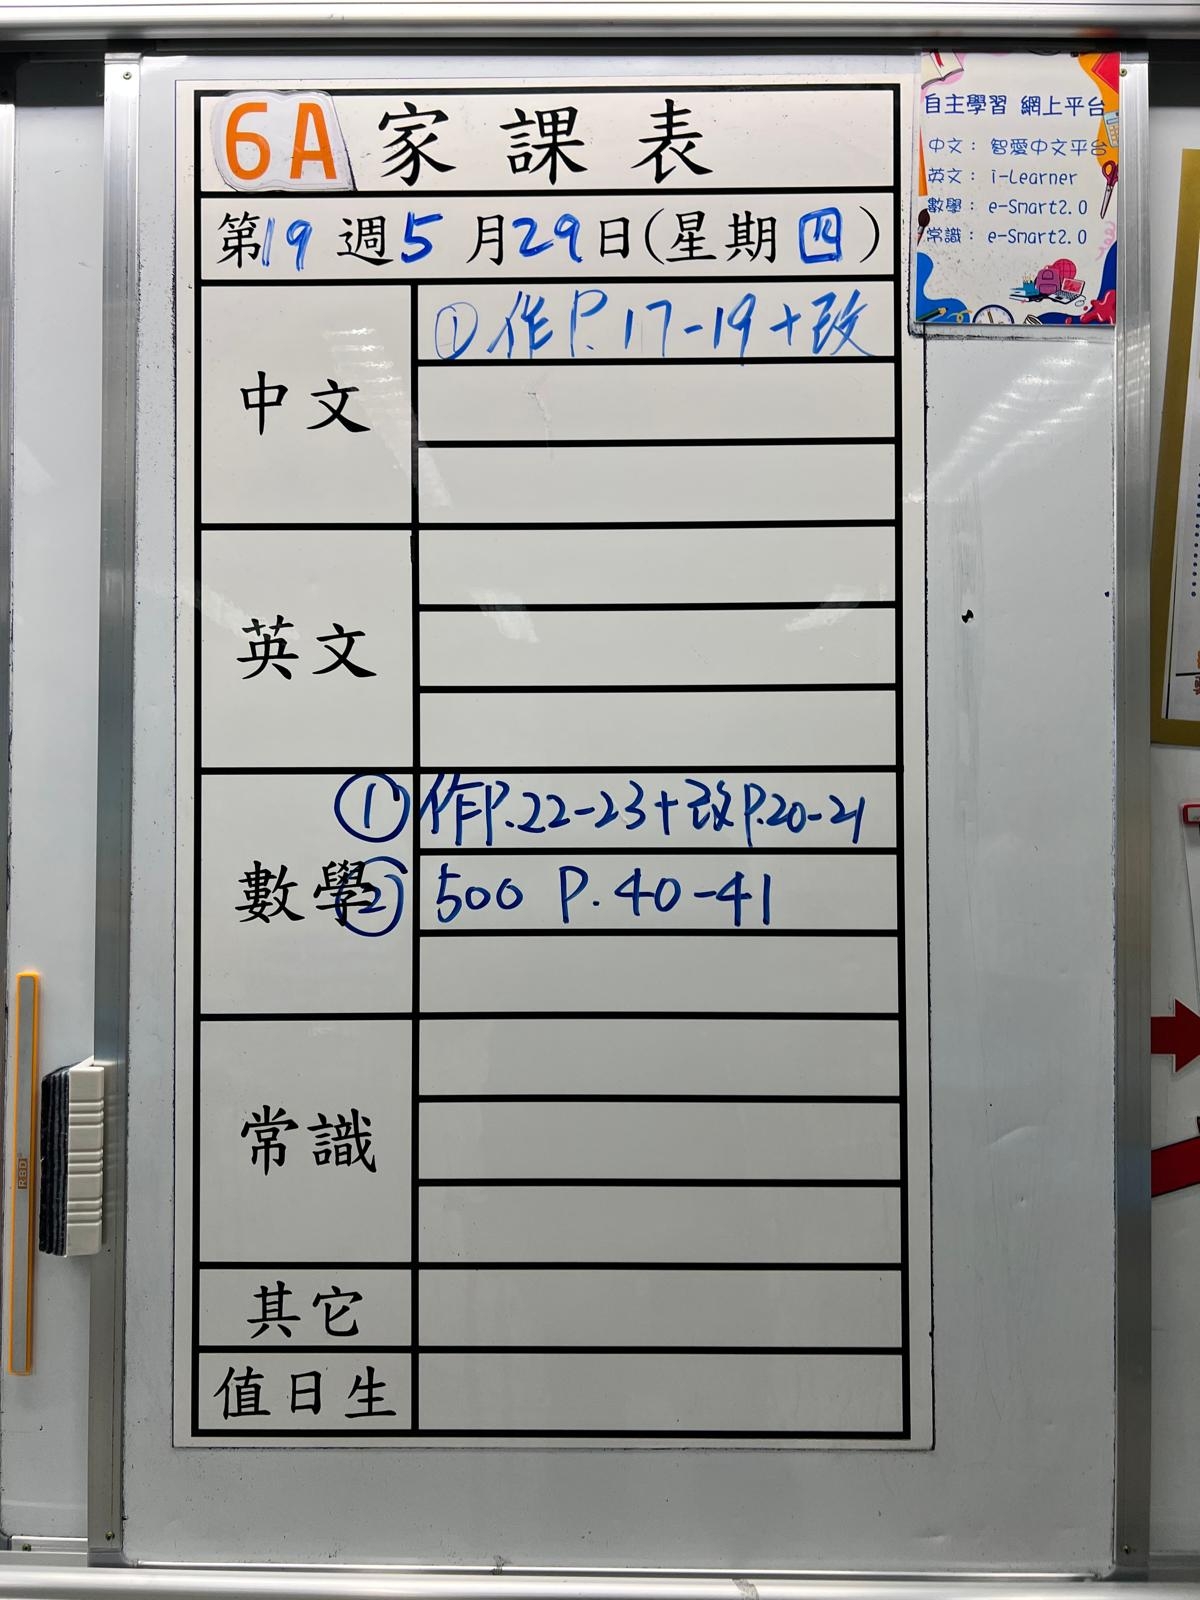 6A 家課表
第19週5月29日(星期四)
中文
①作P.17-19+改
英文
數學
①作P.22-23+改P.20-21
②500 P.40-41
常識
其它
值日生
自主學習 網上平台
中文： 智愛中文平台
英文： i-Learner
數學： e-Smart2.0
常識： e-Smart2.0
RBD